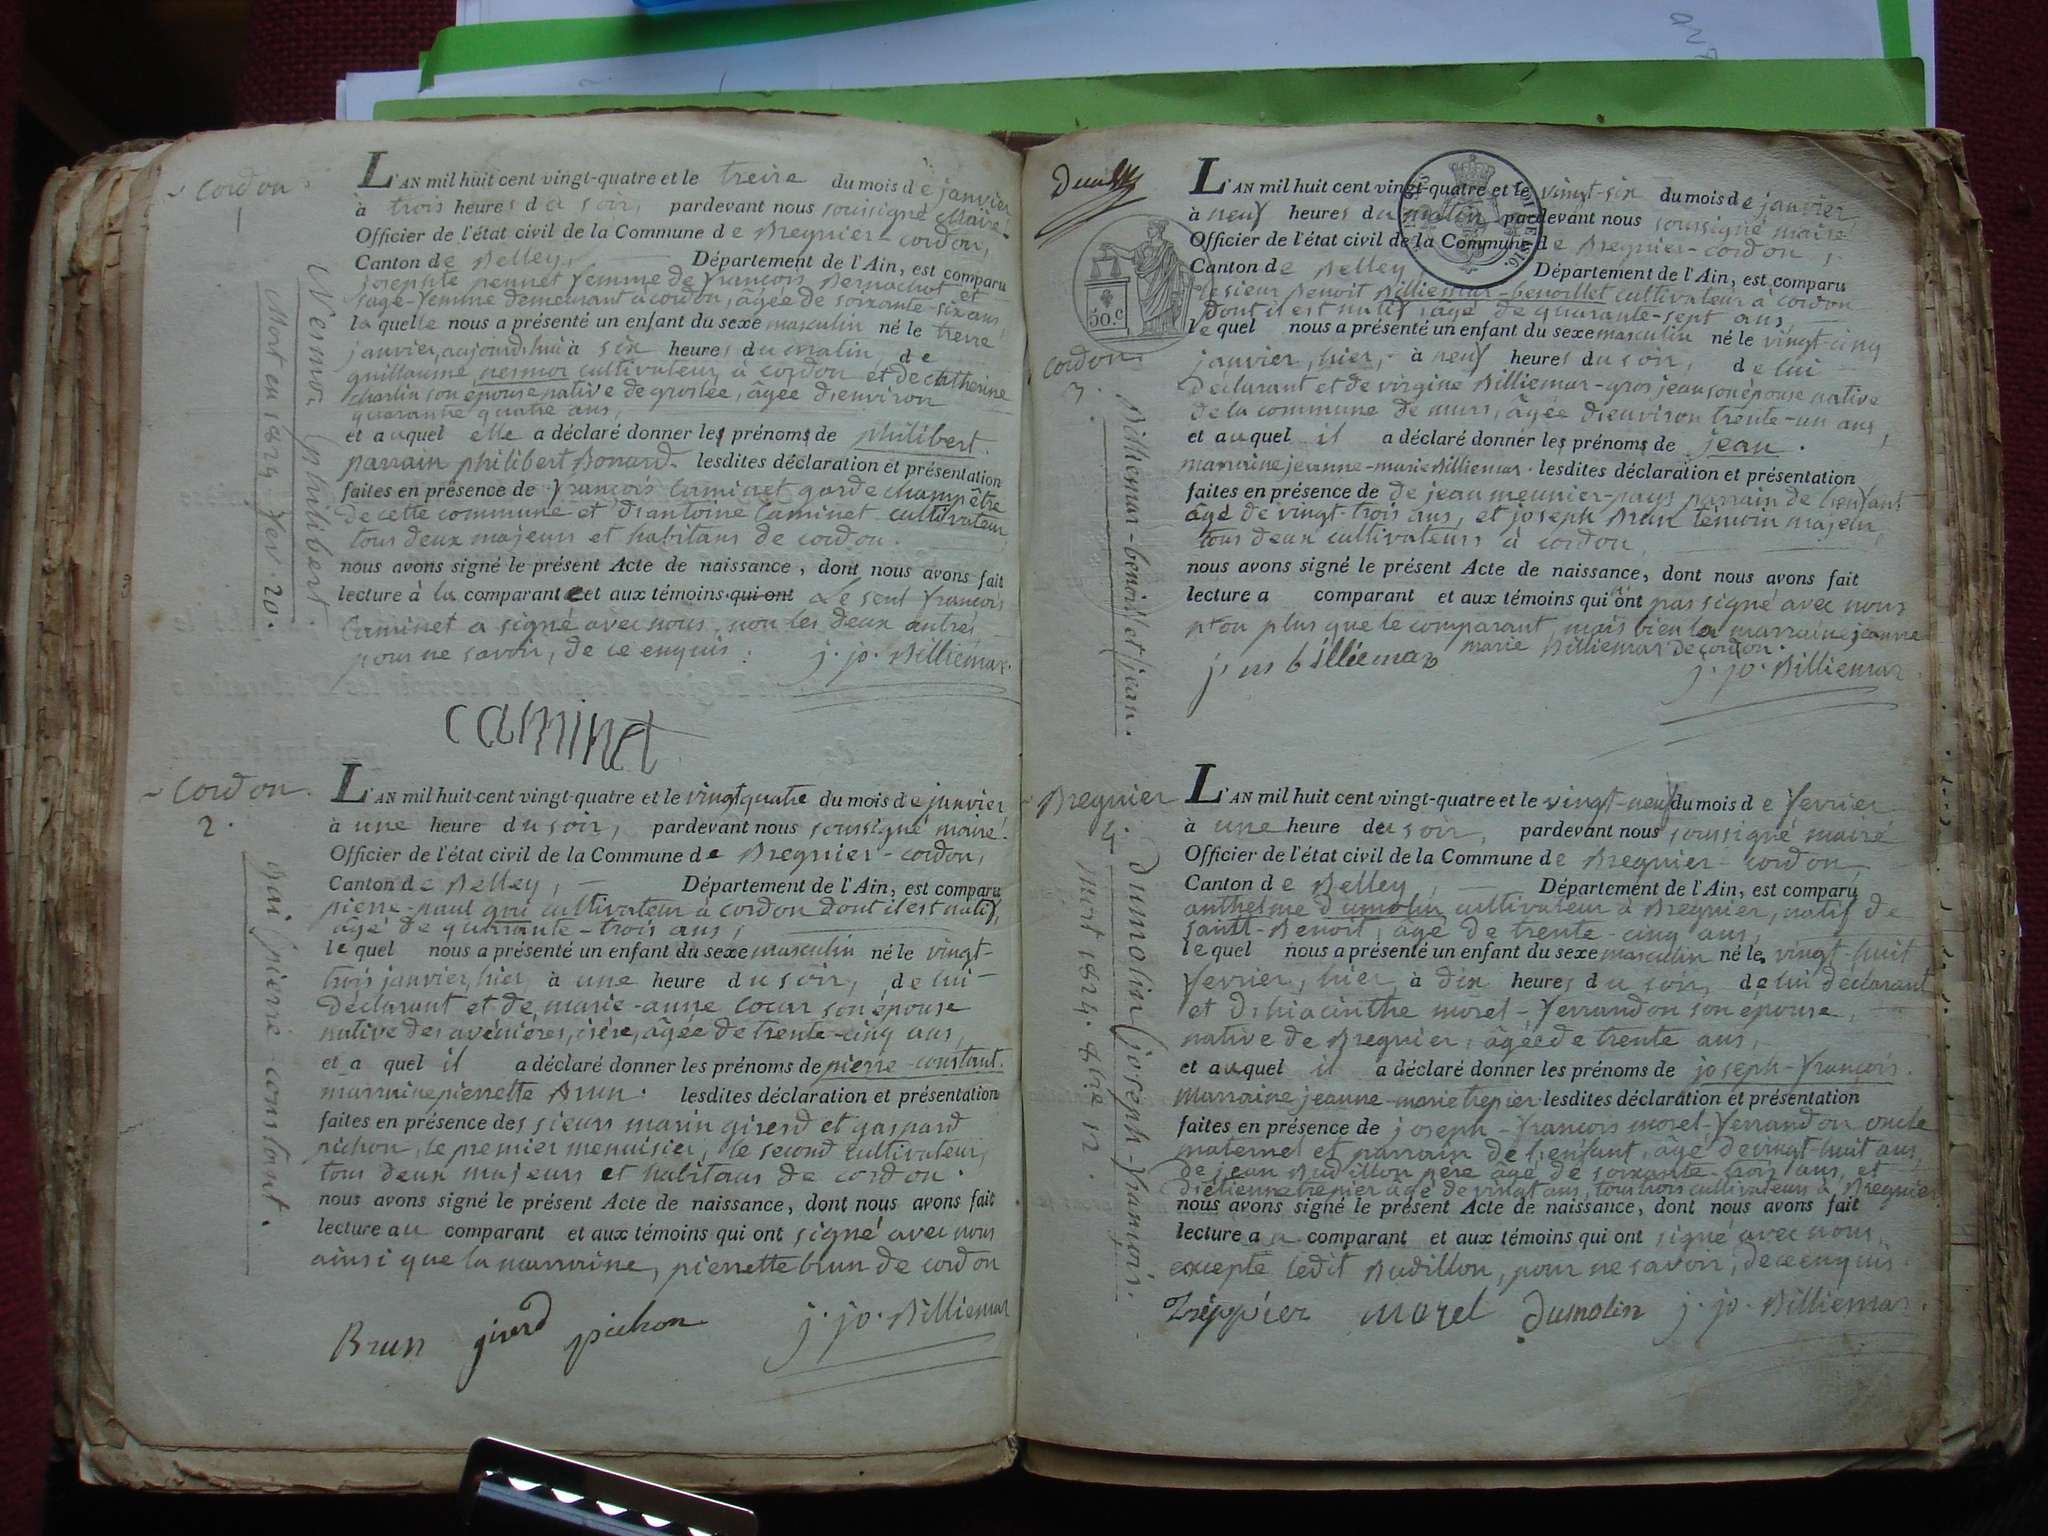 Cordon.
1
L'AN mil huit cent vingt-quatre et le treize du mois de janvier
à trois heures du soir, pardevant nous soussigné Maire
Officier de l'état civil de la Commune de Bregnier-cordon,
Canton de Belley, Département de l'Ain, est comparu
josephte pennet femme de françois Bernachot et
sage-femme demeurant à cordon, âgée de soixante-six ans,
la quelle nous a présenté un enfant du sexe masculin né le treize
janvier, aujourd'hui à six heures du matin, de
guillaume nesmoz cultivateur à cordon et de catherine
charlin son épouse native de groslée, âgée d'environ
quarante quatre ans,
et auquel elle a déclaré donner les prénoms de philibert.
parrain philibert Bonard. lesdites déclaration et présentation
faites en présence de françois Caminet garde champêtre
de cette commune et d'antoine Caminet cultivateur
tous deux majeurs et habitans de cordon.
nous avons signé le présent Acte de naissance, dont nous avons fait
lecture à la comparante et aux témoins qui ont le seul françois
Caminet a signé avec nous, non les deux autres
pour ne savoir, de ce enquis. j. jo. Billiemaz.
caminet
Nesmoz philibert.
Mort en 1824 fev. 20.
Cordon.
2.
L'AN mil huit cent vingt-quatre et le vingt quatre du mois de janvier
à une heure du soir, pardevant nous soussigné maire
Officier de l'état civil de la Commune de Bregnier-cordon,
Canton de Belley, Département de l'Ain, est comparu
pierre-paul gai cultivateur à cordon dont il est natif,
âgé de quarante-trois ans,
le quel nous a présenté un enfant du sexe masculin né le vingt-
trois janvier, hier, à une heure du soir, de lui
déclarant et de marie-anne coeur son épouse
native des avenières, isère, âgée de trente-cinq ans,
et a quel il a déclaré donner les prénoms de pierre-constant.
marraine pierrette Brun. lesdites déclaration et présentation
faites en présence des sieurs marin girerd et gaspard
pichon, le premier menuisier, le second cultivateur,
tous deux majeurs et habitans de cordon.
nous avons signé le présent Acte de naissance, dont nous avons fait
lecture au comparant et aux témoins qui ont signé avec nous
ainsi que la marraine, pierrette brun de cordon
Brun girerd pichon j. jo. Billiemaz
gai pierre-constant.
50.C
cordon.
3.
L'AN mil huit cent vingt-quatre et le vingt-six du mois de janvier
à neuf heures du matin pardevant nous soussigné maire
Officier de l'état civil de la Commune de Bregnier-cordon,
Canton de Belley, Département de l'Ain, est comparu
le sieur Benoit Billiemaz-benoillet cultivateur à cordon
dont il est natif, âgé de quarante-sept ans,
le quel nous a présenté un enfant du sexe masculin né le vingt-cinq
janvier, hier, à neuf heures du soir, de lui
déclarant et de virgine Billiemaz-gros jean son épouse native
de la commune de murs, âgée d'environ trente-un ans,
et auquel il a déclaré donner les prénoms de jean.
marraine jeanne-marie Billiemaz. lesdites déclaration et présentation
faites en présence de de jean meunier-pays parrain de l'enfant
âgé de vingt-trois ans, et joseph Brun témoin majeur,
tous deux cultivateurs à cordon,
nous avons signé le présent Acte de naissance, dont nous avons fait
lecture a comparant et aux témoins qui n'ont pas signé avec nous
non plus que le comparant, mais bien la marraine jeanne
marie Billiemaz de cordon.
billiemaz j. jo. Billiemaz.
Billiemaz-benoillet jean.
Bregnier
4.
L'AN mil huit cent vingt-quatre et le vingt-neuf du mois de fevrier
à une heure du soir, pardevant nous soussigné maire
Officier de l'état civil de la Commune de Bregnier-cordon,
Canton de Belley, Département de l'Ain, est comparu
anthelme dumolin cultivateur à Bregnier, natif de
saint-Benoit, âgé de trente-cinq ans,
le quel nous a présenté un enfant du sexe masculin né le vingt-huit
fevrier, hier, à dix heures du soir, de lui déclarant
et d'hiacinthe morel-ferrandon son épouse,
native de Bregnier, âgée de trente ans,
et auquel il a déclaré donner les prénoms de joseph-françois.
Marraine jeanne-marie trepier. lesdites déclaration et présentation
faites en présence de joseph-françois morel-ferrandon oncle
maternel et parrain de l'enfant, âgé de vingt-huit ans,
de jean Budillon père âgé de soixante-trois ans, et
d'étienne trepier âgé de vingt ans, tous trois cultivateurs à Bregnier
nous avons signé le présent Acte de naissance, dont nous avons fait
lecture au comparant et aux témoins qui ont signé avec nous,
excepté ledit Budillon, pour ne savoir, de ce enquis.
Treppier morel dumolin j. jo. Billiemaz.
Dumolin joseph-françois.
Mort 1824. 8bre 12.